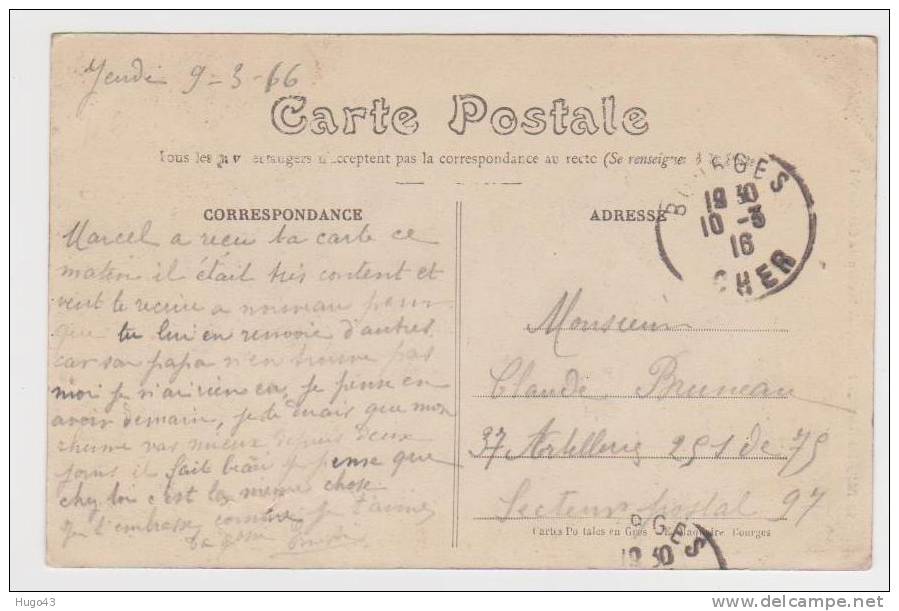 Jeudi 9-3-16
Carte Postale
Tous les pays étrangers n'acceptent pas la correspondance au recto (Se renseigner à la Poste)
CORRESPONDANCE
ADRESSE
BOURGES
19 30
10 -3
16
CHER
Marcel a reçu ta carte ce
matin il était très content et
veut te recrire a nouveau pour
que tu lui en renvoie d'autres
car son papa n'en trouve pas
moi je n'ai rien eu, je pense en
avoir demain, je te dirais que mon
rhume vas mieux depuis deux
jours il fait beau je pense que
chez toi c'est la même chose
je t'embrasse comme je t'aime
ta
Monsieur
Claude Bruneau
37 Artillerie 251 de 75
Secteur postal 97
Cartes Postales en Gros E. Maquaire Bourges
RGES
19 30
Hugo43